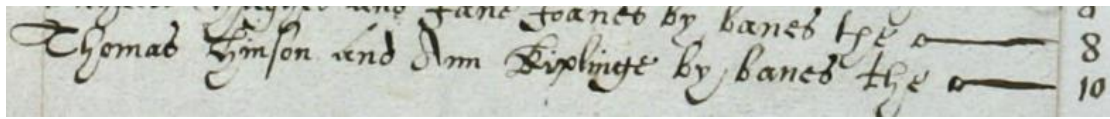 and Jane Joanes by banes the 8
Thomas Hinson and Ann Kiplinge by banes the 10